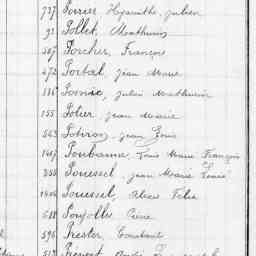 727 Poirier Hyacinthe, Julien
92 Pollet, Mathurin
507 Porcher, François
472 Portal, Jean Marie
136 Posnic, Julien Mathurin
155 Potier, Jean Marie
543 Potiron, Jean Louis
1417 Poubanne, Louis Marie François
255 Poussel, Jean Marie Louis
1404 Poussel, Félix
518 Poyolle, Pierre
596 Prester, Constant
Prevert, André